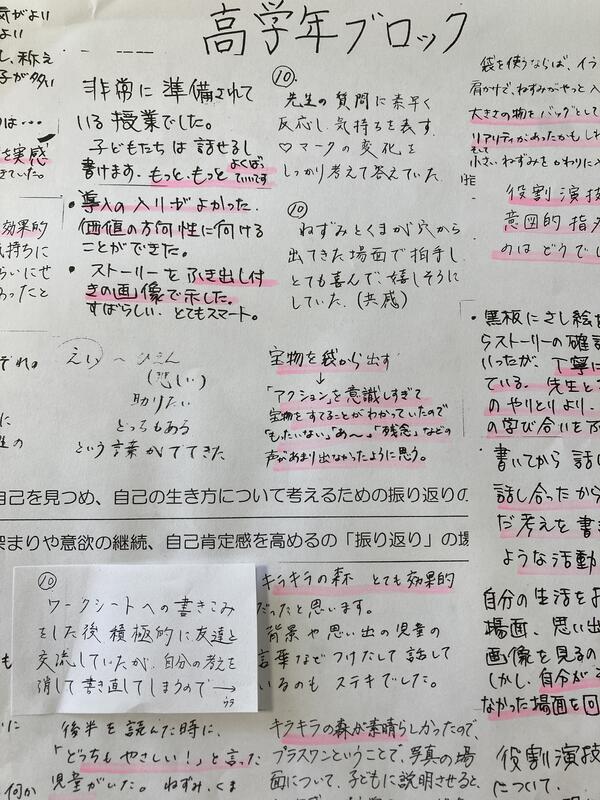 高学年ブロック
気がよい
よい
し、称え
子が多い
を実感
きていた。
効果的
気持ちに
らいにせ
あったと
非常に準備されて
いる授業でした。
子どもたちは話せるし
書けます。もっと、もっと よくば
ていいです
・導入の入りがよかった。
価値の方向性に向ける
ことができた。
・ストーリーをふき出し付
きの画像で示した。
すばらしい。とてもスマート。
⑩
先生の質問に素早く
反応し、気持ちを表す
♡マークの変化を
しっかり考えて答えていた。
⑩
ねずみとくまが穴から
出てきた場面で拍手し
とても喜んで、嬉しそうに
していた。(共感)
袋を使うならば、イラ
肩かけで、ねずみがやっと入
大きさの物をバッグとして
リアリティがあったかもしれ
そして
小さいねずみをかわりに入
役割演技
意図的指
のはどうで
ぞれ。
(悲しい)
助りたい
どっちもある
という言葉がでてきた
宝物を袋から出す
↓
「アクション」を意識しすぎて
宝物をすてることがわかっていたので
「もったいない」「あ〜」「残念」などの
声があまり出なかったように思う。
・黒板にさし絵を
らストーリーの確認
いったが、丁寧に
ている。先生と
のやりとりより、
の学び合いを
書いてから話し
話し合ったから
だ考えを書き
ような活動
自己を見つめ、自己の生き方について考えるための振り返りの
まりや意欲の継続、自己肯定感を高めるの「振り返り」の場
⑩
ワークシートへの書きこみ
をした後、積極的に友達と
交流していたが、自分の考えを
消して書き直してしまうので→
ウラ
キラキラの森 とても効果的
だったと思います。
背景や思い出の児童の
言葉などつけたして話して
いるのもステキでした。
自分の生活をお
場面、思い出
画像を見るの
しかし、自分が
なかった場面を回
後半を読んだ時に、
「どっちもやさしい!」と言った
児童がいた。ねずみ、くま
キラキラの森が素晴らしかったので、
プラスワンということで、写真の場
面について、子どもに説明させると、
役割演技
について、